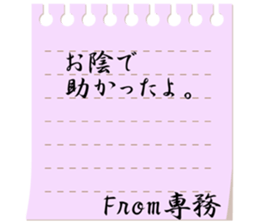 お陰で
助かったよ。
From専務